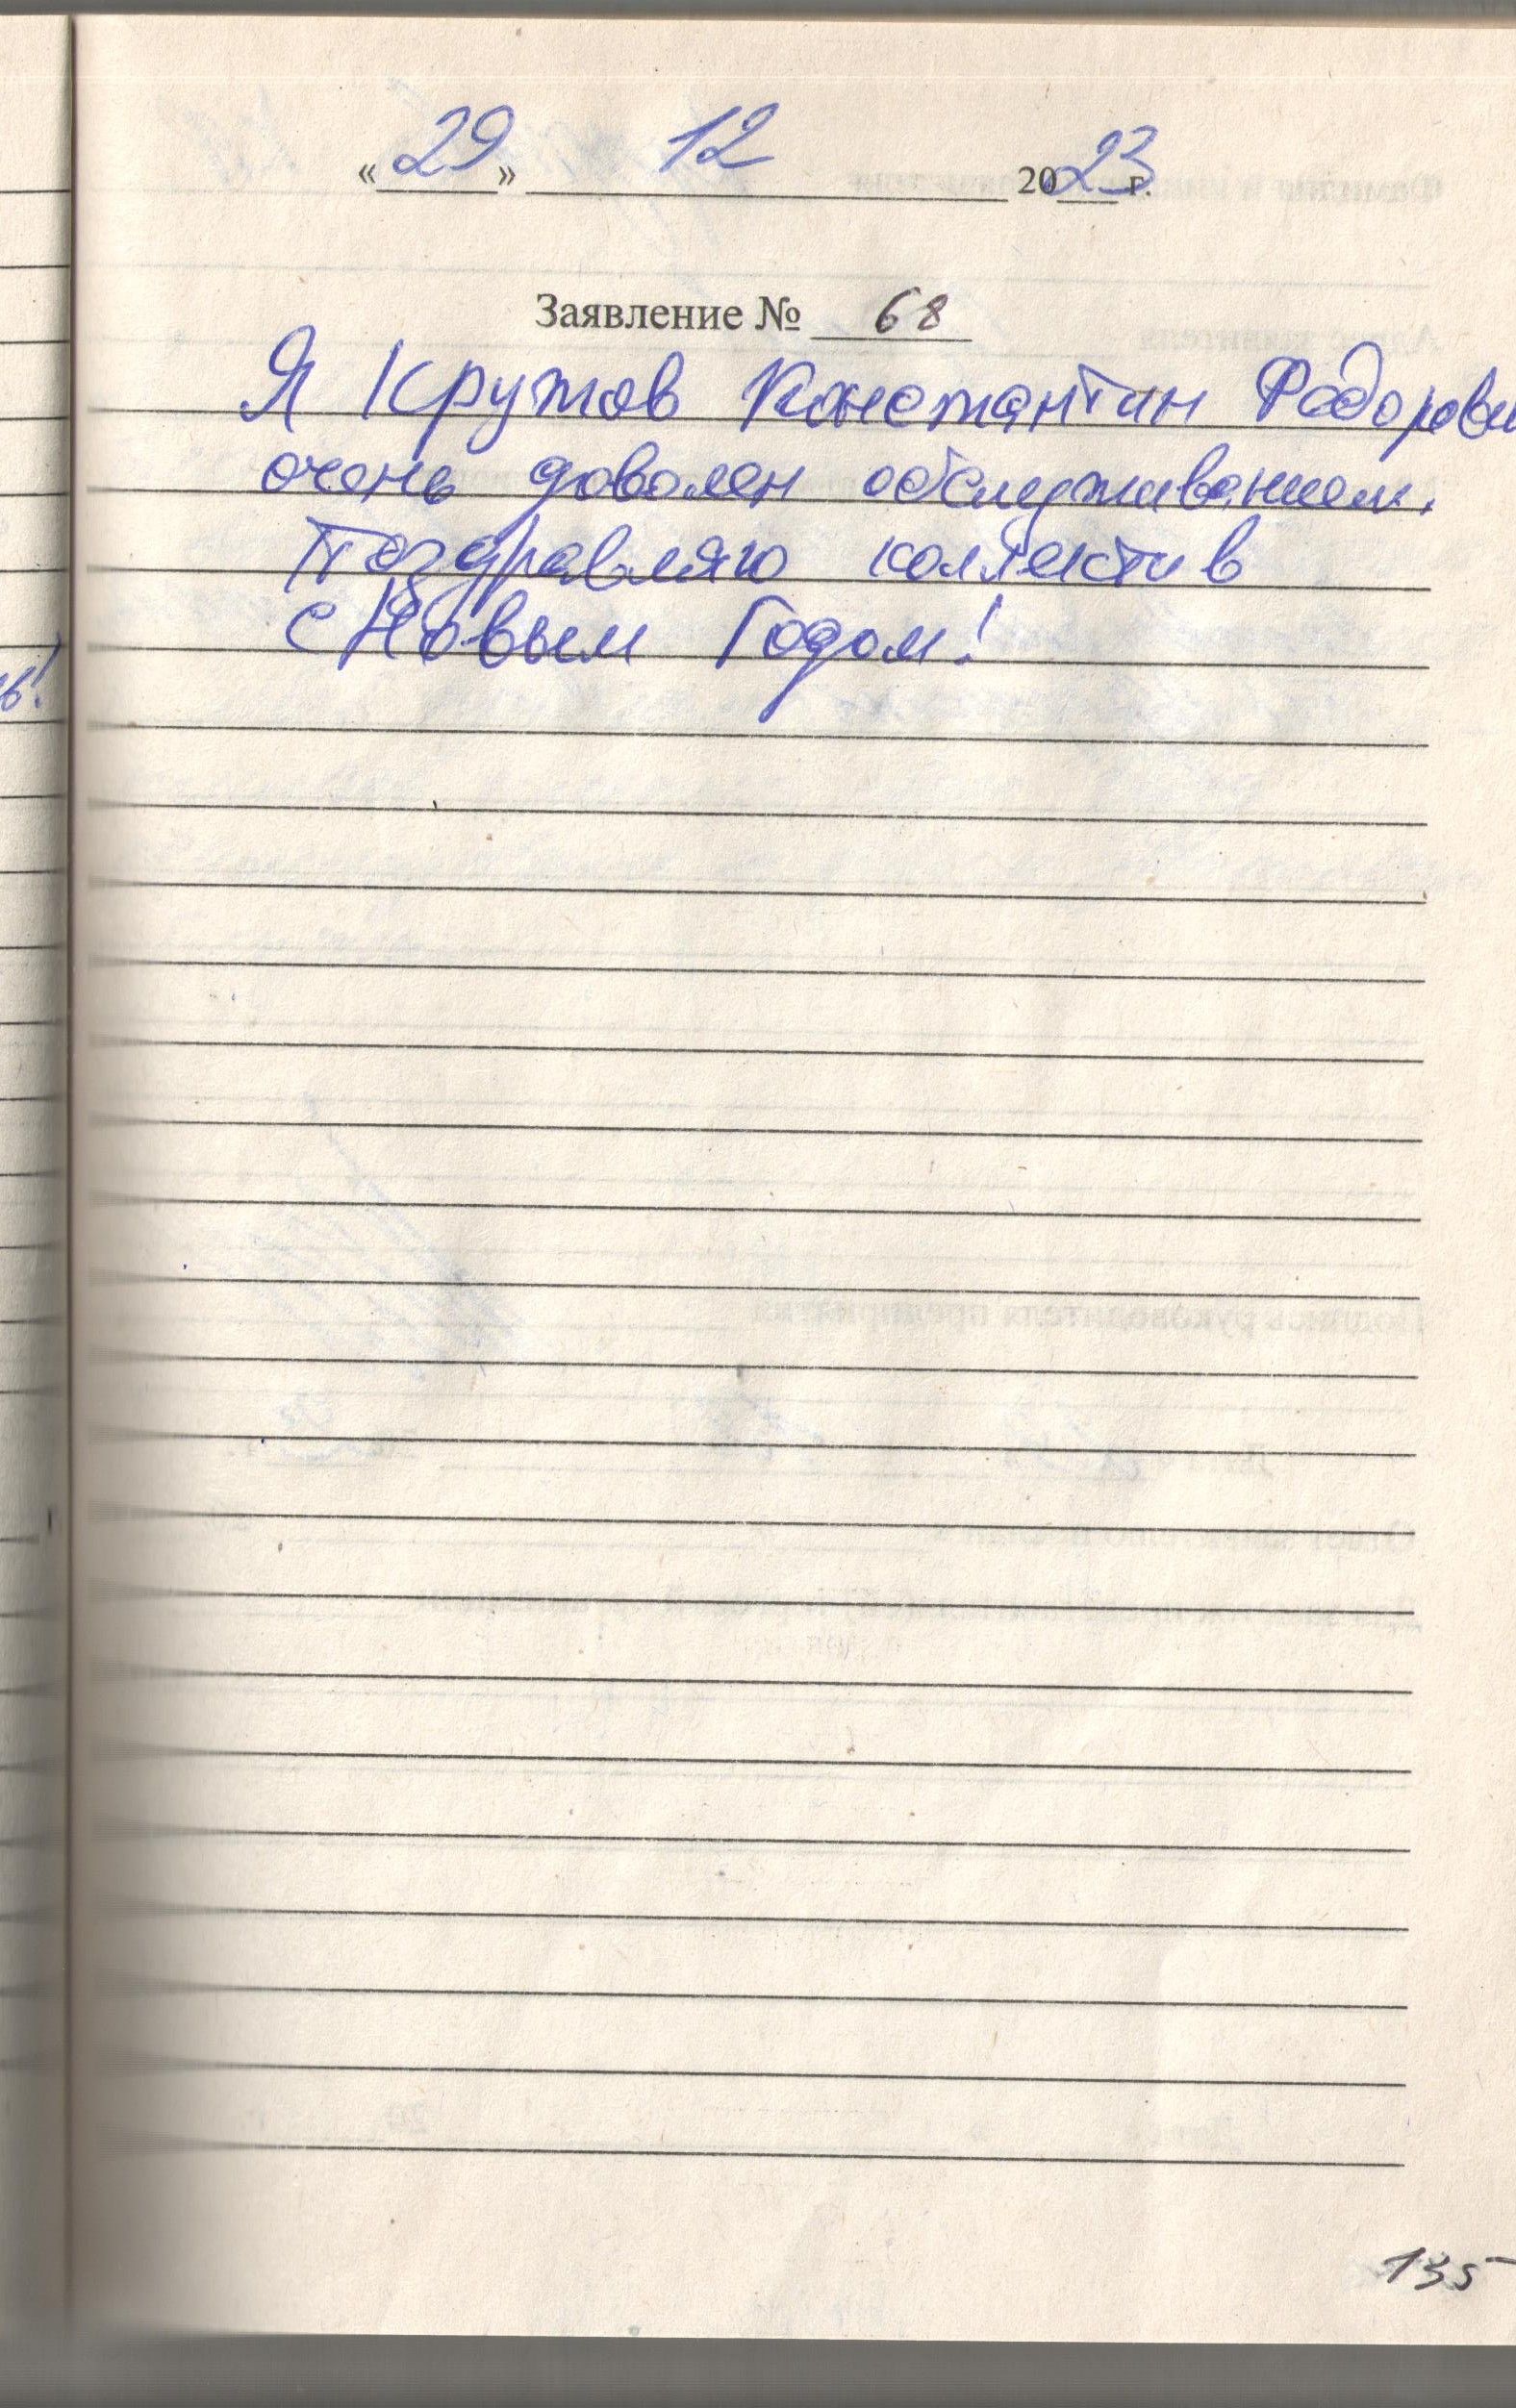 «29» 12 2023 г.
Заявление № 68
Я Константин
очень доволен обслуживанием.
Поздравляю коллектив
с Новым Годом!
в!
135